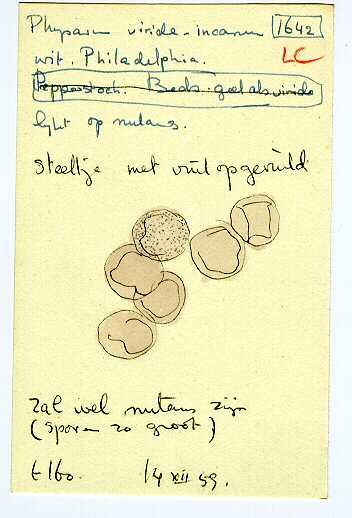 Physarum viride-incanum 1642
wit. Philadelphia. LC
Pepperstoch. Beds. geel als viride
lijkt op nutans.
steeltje met vuil opgevuld
zal wel nutans zijn
(sporen zo groot)
14 XII 59.